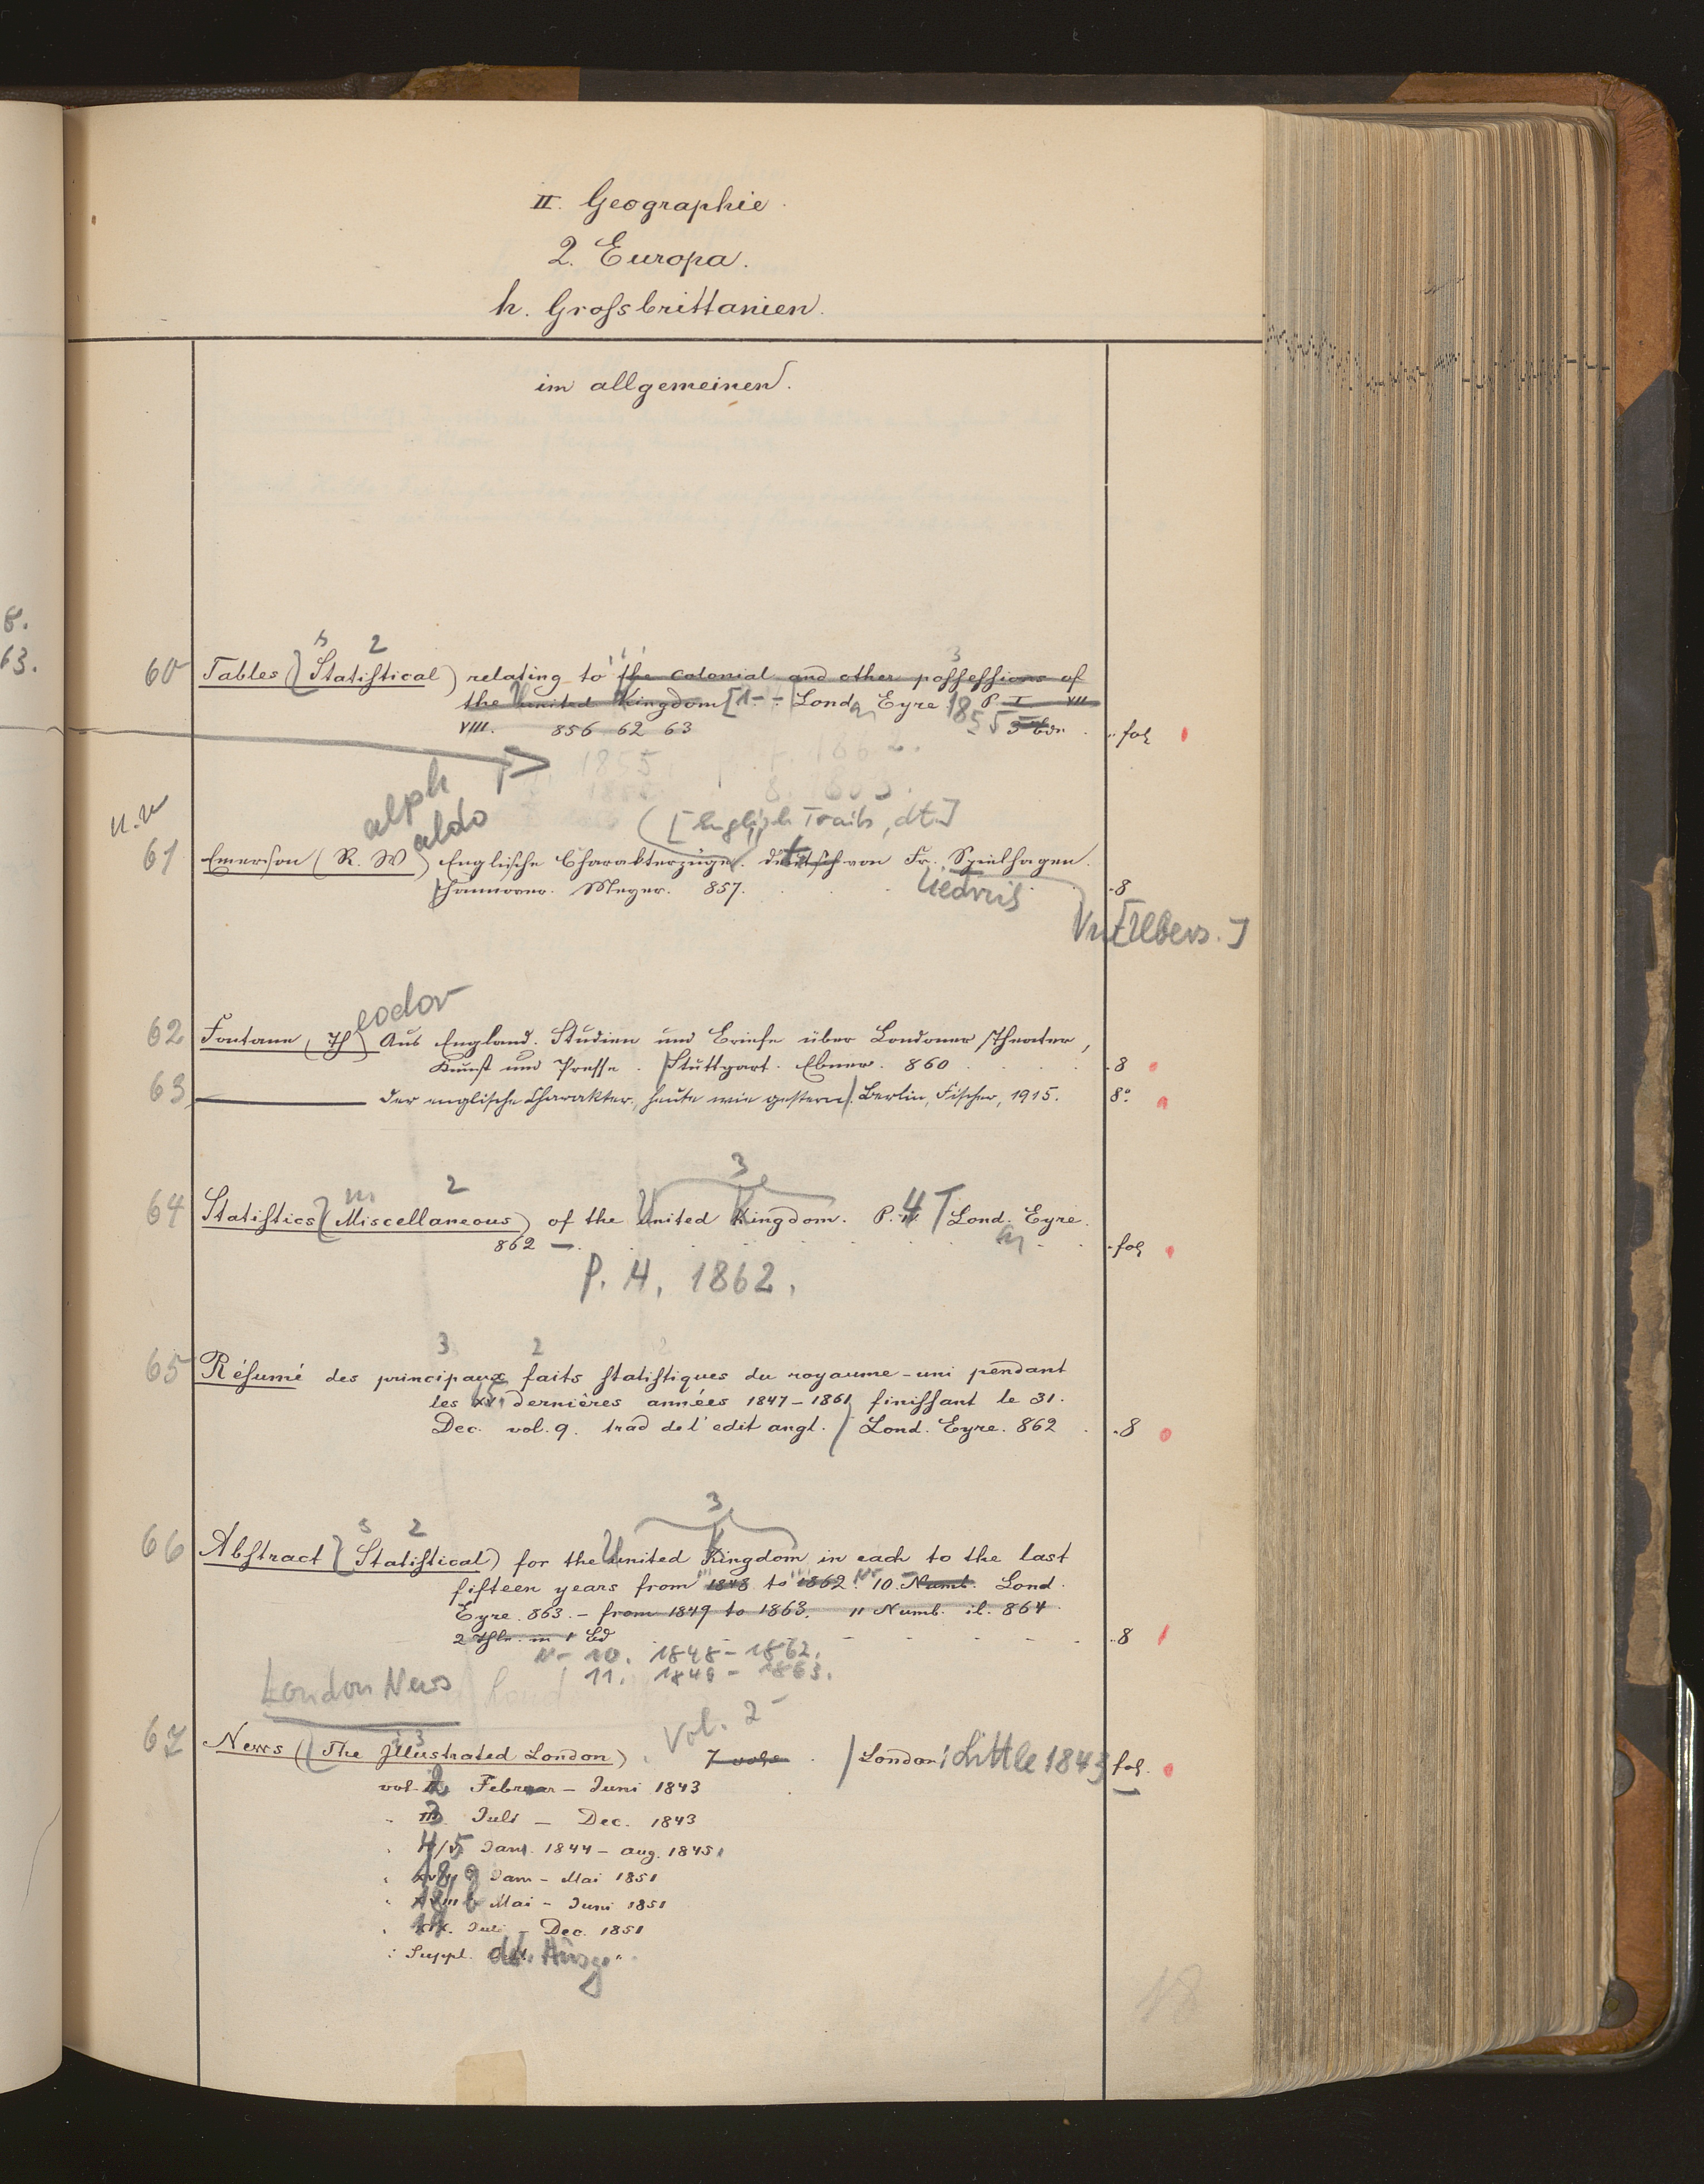 II. Geographie.
2. Europa.
h. Groſsbrittanien.
im allgemeinen.
8.
63.
s 2 3
60 Tables (Statiſtical) relating to the colonial and other poſſeſſions of
the United Kingdom [1- - Lond. Eyre 1855 P. I. VII
VIII. 856 62 63 fol
1855. 1862.
8. 1863.
alph
aldo
([English Traits, dt.])
61 Emerson (R. W) Englische Charakterzüge. deutsch von Fr. Spielhagen.
Hannover. Meyer. 857. iedrich 8
[Übers.]
eodor
62 Fontane, (Th) Aus England. Studien und Briefe über Londoner Theater,
Kunst und Presse. / Stuttgart. Ebner. 860 8
63 der englische Charakter, heute wie gestern /. Berlin, Fischer, 1915. 8°.
3
m 2
64 Statiſtics (Miscellaneous) of the United Kingdom. P. 4 / Lond. Eyre.
862 — fol
P. 4. 1862.
3 2
65 Réſumé des principaux faits ſtatiſtiques du royaume-uni pendant
les 15 dernières années 1847-1861 finiſſant le 31.
Dec. vol. 9. trad de l'edit angl. / Lond. Eyre. 862 8
3
s 2
66 Abſtract (Statiſtical) for the United Kingdom in each to the last
fifteen years from 1848 to 1862. 10. Numb. Lond.
Eyre. 863. - from 1849 to 1863. 11 Numb. il. 864.
2 Thle. in 1 Bd 8
N- 10. 1848-1862.
11. 1849-1863.
London News
Vol. 2-
67 News (The Illustrated London). 7 vols. / London: Little 1843 fol.
vol. 2 Februar - Juni 1843
" 3 Juli - Dec. 1843
" 4/5 Jan. 1844 - Aug. 1845
" 18 a Jan - Mai 1851
" 18 b Mai - Juni 1851
" 19. Juli - Dec. 1851
" Suppl. dt. Ausg.
18